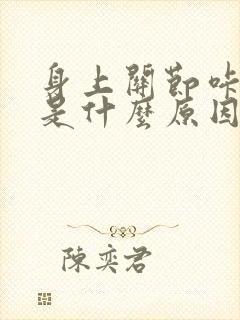 身上關節咔
是什麼原因
陳奕君